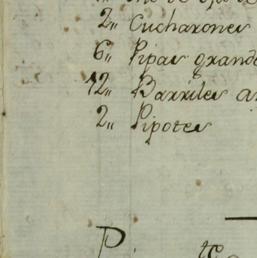 2,, Cucharones
6,, Pipas grand
12,, Barriles a
2,, Pipotes
P.